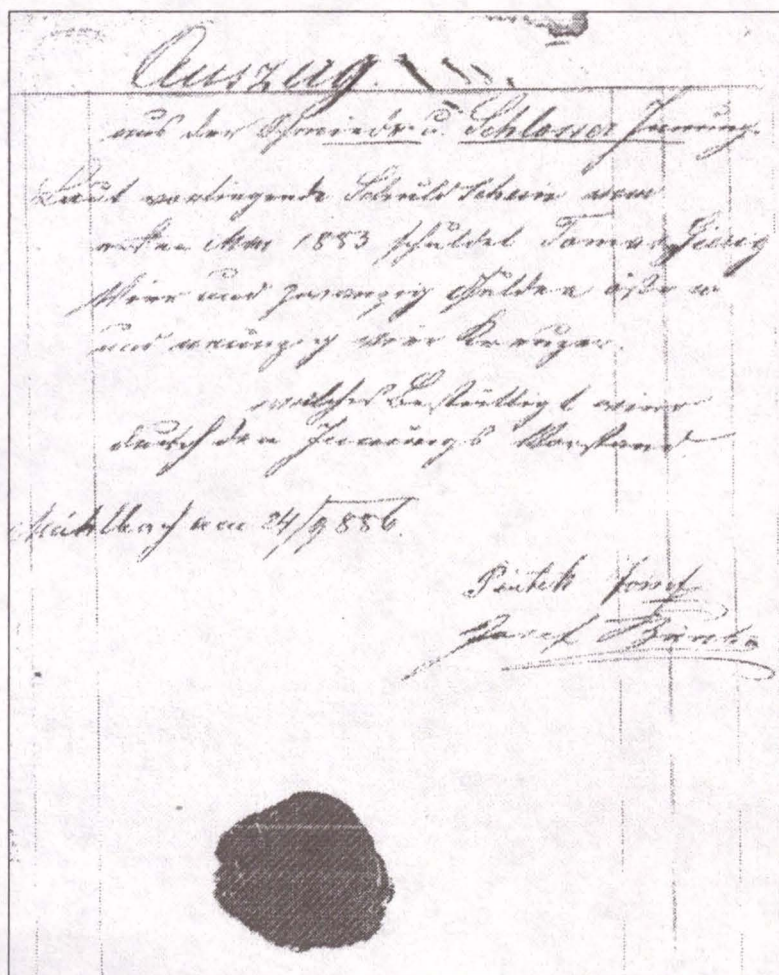 Auszug.
aus der Schmiede u. Schlosser Innung.
Laut vorliegende Schuld Schein vom
ersten Mai 1883 schuldet Tomas
Vier und zwanzig Gulden öst. w
und neunzig vier Kreuzer.
welches Bestättigt wird
durch den Innungs Vorstand
Mühlbach am 24/9 886.
Josef
Josef